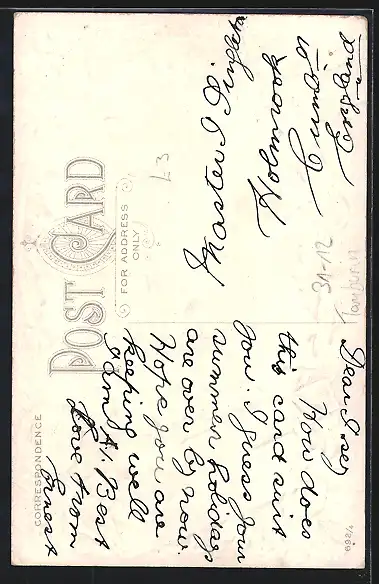 POST CARD
CORRESPONDENCE
FOR ADDRESS
ONLY
Dear
How does
this card suit
you. I guess your
summer holidays
are over by now.
Hope you are
keeping well
I am A1. Best
Love from
Ernest
Master I
England
31-12
Tamburin
692/4